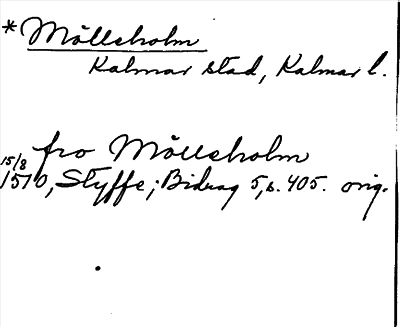 *Möllsholm
Kalmar stad, Kalmar l.
fro Möllsholm
15/8
1510, Styffe; Bidrag 5, s. 405. orig.